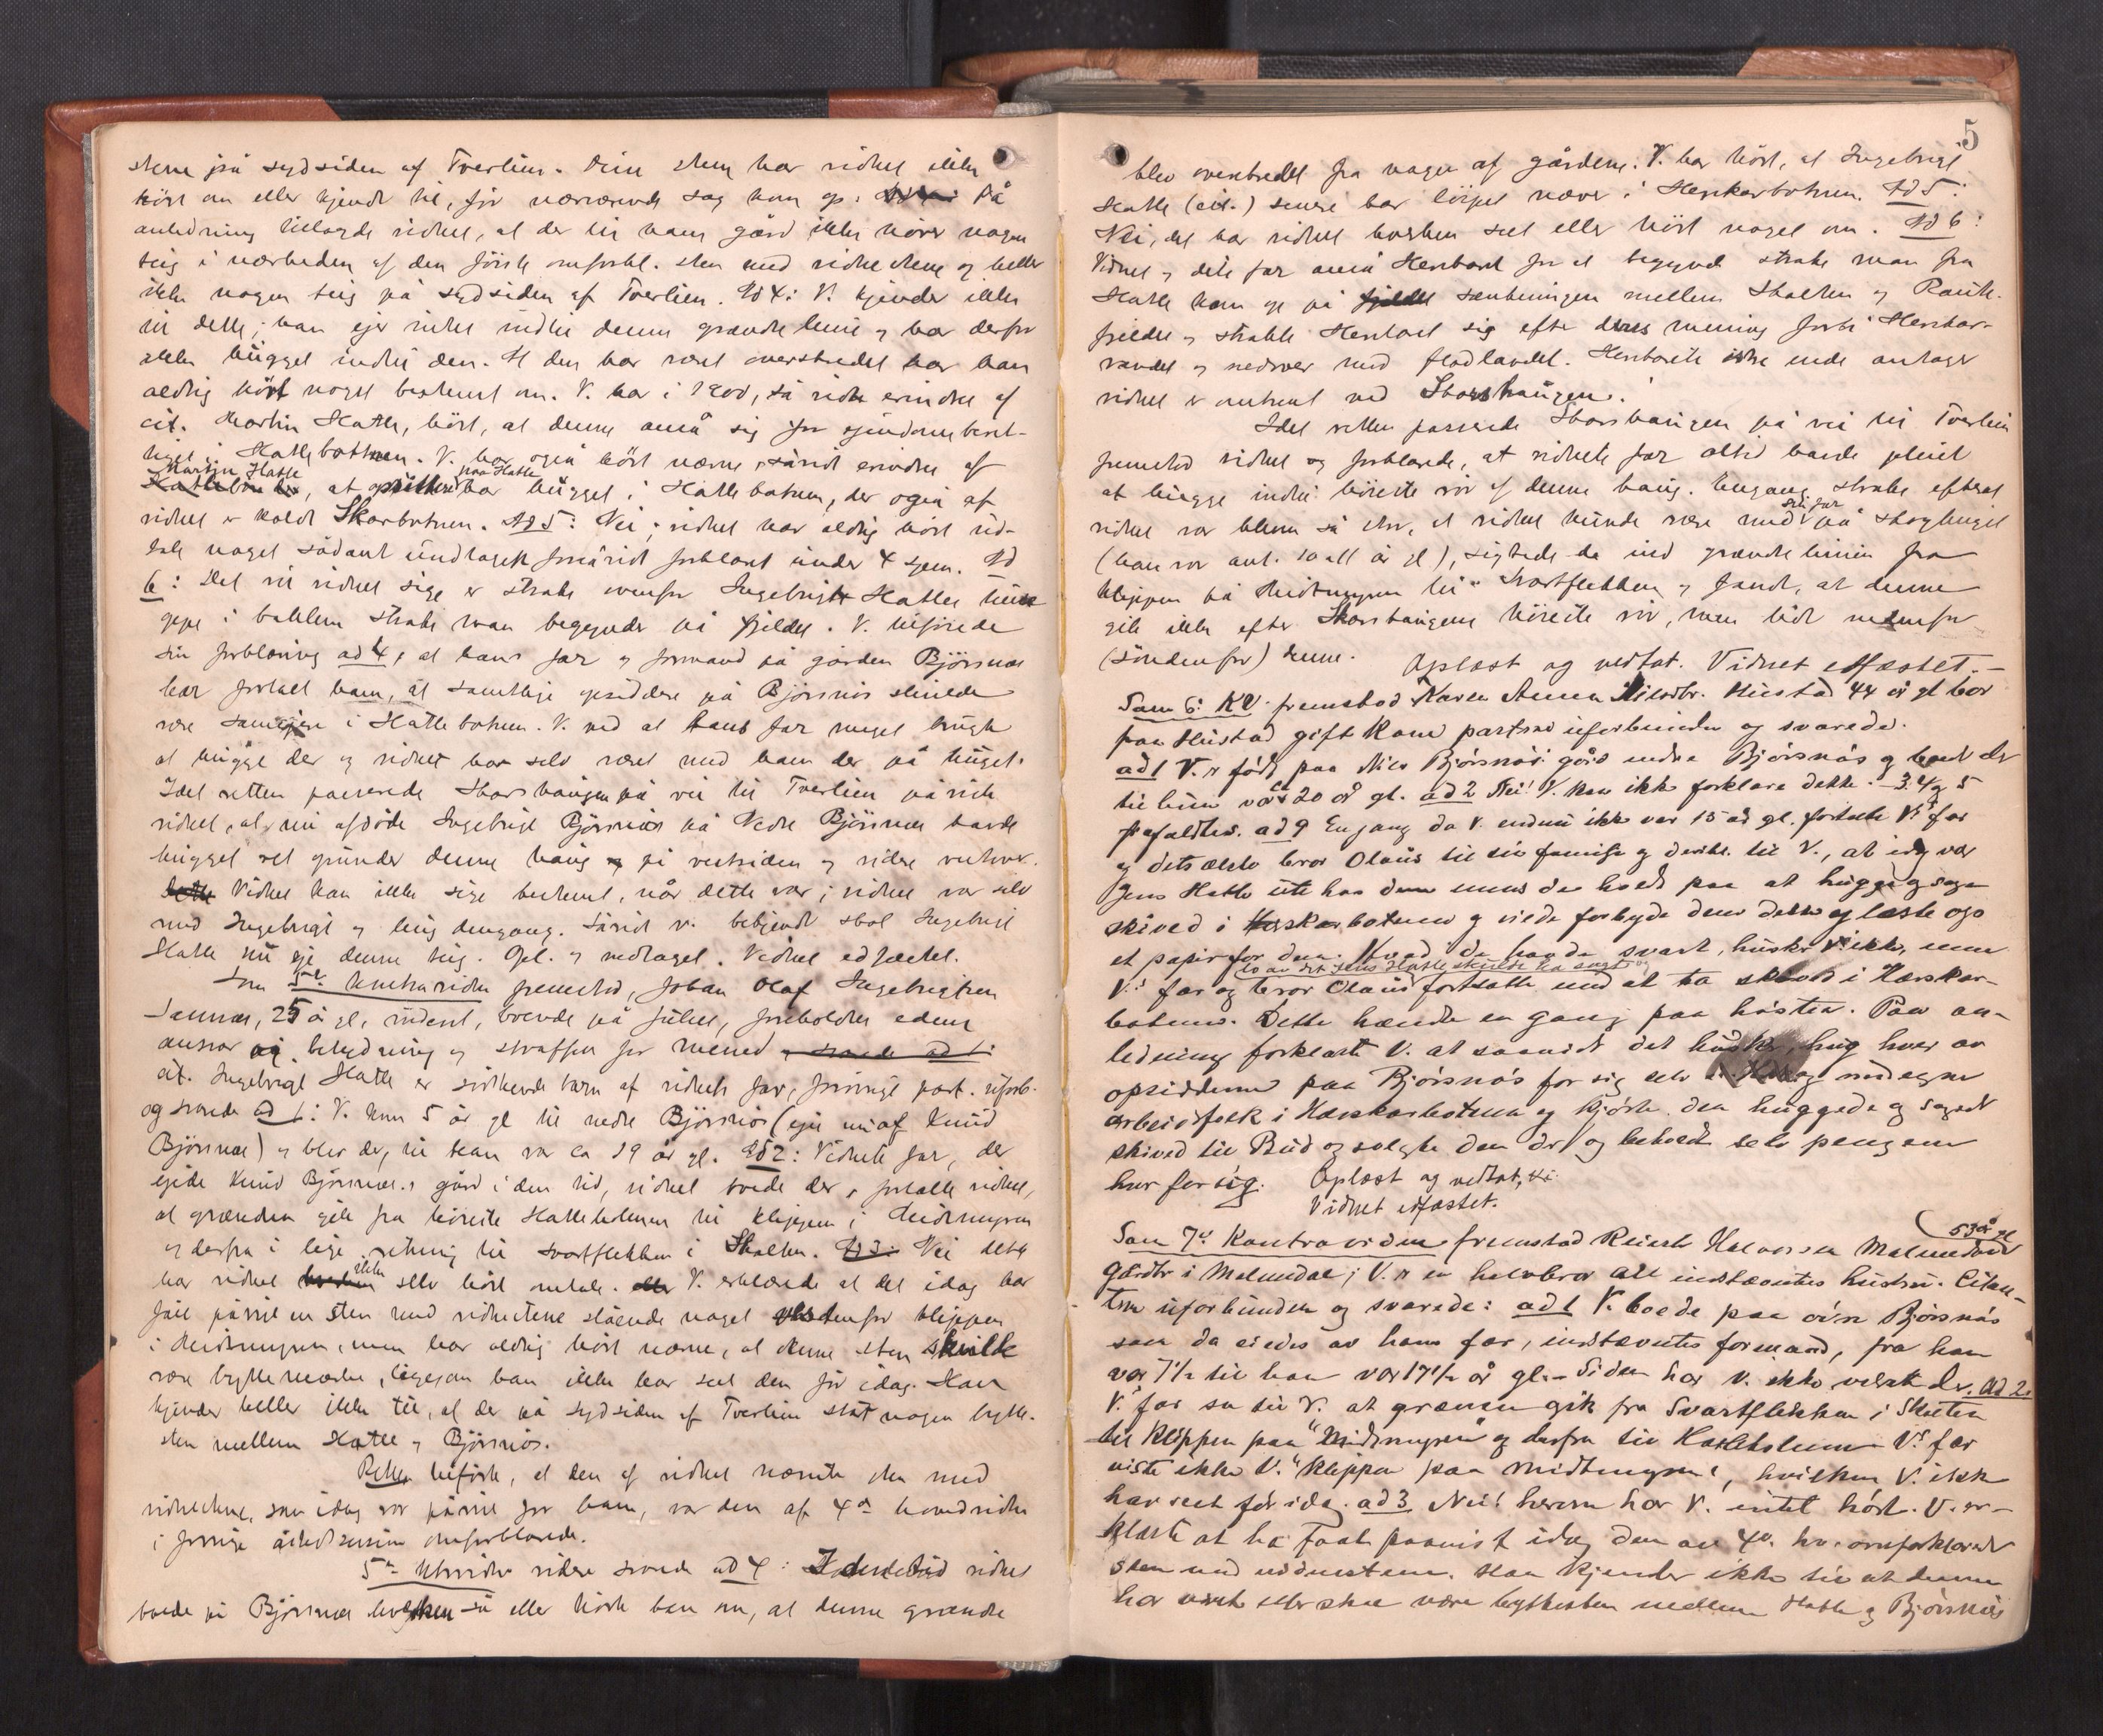 stene på sydsiden af Tverlien. Disse stene har vidnet ikke
hört om eller kjendt til, för nærværende sag kom op. På
anledning tillagde vidnet, at der til hans gård ikke hörer nogen
teig i nærheden af den förste omforkl. sten med vidnestene og heller
ikke nogen teig på sydsiden af Tverlien. Ad 4: V. kjender ikke
til dette; han ejer intet indtil denne grændselinie og har derfor
ikke hugget indtil den. At den har været overskredet har han
aldrig hört noget bestemt om. V. har i 1900, så vidt erindres af
cit. Martin Hatle, hört, at denne så sig for ejendomsberet-
tiget i Hatlebotnen. V. har også hört nævne, såvidt erindres af
Martin Hatle, at opsidderne paa Hatle har hugget i Hatlebotnen, der også af
vidnet er kaldt Skarbotnen. Ad 5: Nei; vidnet har aldrig hört ud-
tale noget sådant undtagen forsåvidt forklaret under 4 spm. Ad
6: Det vil vidnet sige er straks ovenfor Ingebrigt Hatles
i bakken straks man begynder på fjeldet. V. tilföiede
sin forklaring ad 4, at hans far og formand på gården Björsnös
har fortalt ham, at samtlige opsiddere på Björsnös skulde
være sameiere i Hatlebotnen. V. ved at hans far meget brugte
at hugge der og vidnet har selv været med ham der på hugst.
Idet retten passerede Skarshaugen på vei til Tverlien påviste
vidnet, at nu afdöde Ingebrigt Björsnös på Nedre Björsnös havde
hugget ret under denne haug på vestsiden og videre vestover.
Vidnet kan ikke sige bestemt, når dette var; vidnet var selv
med Ingebrigt og hug dengang. Såvidt v. bekjendt skal Ingebrigt
Hatle nu eje denne teig. Opl. og vedtaget. Vidnet edfæstet.
Som 5te kontravidne fremstod Johan Olaf Ingebrigtsen
25 år gl., udent, boende på Julset, foreholdtes edens
ansvar og betydning og straffen for mened
cit. Ingebrigt Hatle er södskendebarn af vidnets far, forövrigt part. uforb.
og svarede ad 1: V. kom 5 år gl til nedre Björsnös (ejes nu af Knud
Björsnös) og blev der, til han var ca 19 år gl. Ad 2: Vidnets far, der
ejede Knud Björsnös's gård i den tid, vidnet boede der, fortalte vidnet,
at grænsen gik fra höieste Hatleholmen til kleppen i Midtmyren
og derfra i lige retning til svartflekken i Skalten. Ad 3: Nei dette
har vidnet ikke selv hört omtale. V. erklærede at det idag har
fåt påvist en sten med vidnestene stående noget vestenfor kleppen
i Midtmyren, men har aldrig hört nævne, at denne sten skulde
være byttemærke, ligesom han ikke har seet den för idag. Han
kjender heller ikke til, at der på sydsiden af Tverlien står nogen bytte-
sten mellem Hatle og Björsnös.
Retten tilförte, at den af vidnet nævnte sten med
vidnestene, som idag var påvist for ham, var den af 4de hovedvidne
i forrige åstedssession omforklarede.
5te kontravidne videre svarede ad 4: I den tid vidnet
boede på Björsnös hverken så eller hörte han om, at denne grændse
5
blev overtredet fra nogen af gårdene. V. har hört, at Ingebrigt
Hatle (cit.) senere har löipet næver i Herskarbotnen. Ad 5:
Nei, det har vidnet hverken seet eller hört noget om. Ad 6:
Vidnet og dets far anså Herskaret for at begynde straks man fra
Hatle kom op på sænkningen mellem Skalten og
fjeldet og strakte Herskaret sig efter deres mening forbi Herskar-
vandet og nedover mod fladlandet. Herskarets östre ende antager
vidnet er omtrent ved Skarshaugen.
Idet retten passerede Skarshaugen på vei til Tverlien
fremstod vidnet og forklarede, at vidnets far altid havde pleiet
at hugge indtil höieste vör af denne haug. Engang straks efterat
vidnet var bleven så stor, at vidnet kunde være med sin far på skoghugst
(han var ant. 10 à 11 år gl), sigtede de ind grændselinien fra
kleppen på Midtmyren til Svartflekken og fandt, at denne
gik ikke efter Skarshaugens höieste vör, men lidt nedenfor
(söndenfor) denne. Oplæst og vedtat. Vidnet edfæstet.
Som 6: KV. fremstod Karen Anna Nilsdtr. Hustad 44 år gl bor
paa Hustad gift Kone partene uforbunden og svarede.
ad 1 V. er født paa Nils Bjørsnøs' gård nedre Bjørsnøs og boede der
til hun var 20 år gl. ad 2 Nei! V. kan ikke forklare dette. 3, 4 og 5
frafaldtes. ad 9 En gang da V. endnu ikke var 15 år gl. fortalte V's far
og dets ældste bror Olaus til sin familje og deribl. til V., at idag var
Jens Hatle ute hos dem mens de holdt paa at hugge og sage
skived i Herskarbotnen og vilde forbyde dem dette og læste ogs
et papir for dem. Hvad de havde svart, husker V. ikke, men
to av det Jens Hatle skulde ha sagt og
V's far og bror Olaus fortsatte med at ta skived i Herskar-
botnen. Dette hændte en gang paa høsten. Paa an-
ledning forklarte V. at saavidt det husker, hug hver av
opsidderne paa Bjørsnøs for sig selv og med egne
arbeidsfolk i Herskarbotnen og kjørte den huggede og sagede
skived til Bud og solgte den der og beholdt selv pengene
hver for sig. Oplæst og vedtat,
Vidnet edfæstet.
Som 7de Kontravidne fremstod Reiert Halvorsen Malmedal 53 år gl
Gårdbr i Malmedal; V. er en halvbror til indstævntes hustru. Citan-
tene uforbunden og svarede: ad 1 V. boede paa øvre Bjørsnøs
som da eiedes av hans far, indstævntes formand, fra han
var 7½ til han var 17½ år gl. – Siden har V. ikke været der. Ad 2:
V's far sa til V. at grænsen gik fra Svartflekken i Skalten
til Kleppen paa "Midtmyren" og derfra til Hatleholmen V's far
viste ikke V. "Kleppen paa Midtmyren", hvilken V. ikke
har seet før idag. ad 3 Nei! herom har V. intet hørt. V. er-
klærte at ha faat paavist idag den av 4de hv. omforklarede
sten med vidnestene. Han kjender ikke til at denne
har været eller skal være byttesten mellem Hatle og Bjørsnøs